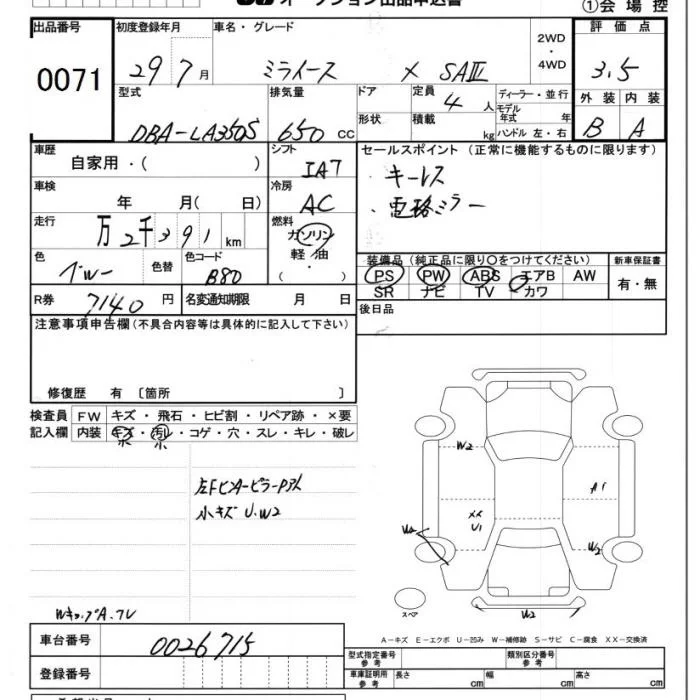 オークション出品申込書
①会場控
出品番号
0071
初度登録年月
29 7月
車名・グレード
ミライース X SAⅢ
2WD
・
4WD
評価点
3.5
外装 内装
B A
型式
DBA-LA350S
排気量
650 cc
ドア
形状
定員
4人
積載
kg
ディーラー・並行
モデル
年式 年
ハンドル 左・右
車歴
自家用・( )
シフト
IA7
セールスポイント(正常に機能するものに限ります)
・キーレス
・電格ミラー
車検
年 月( 日)
冷房
AC
走行
万2千391km
燃料
ガソリン
軽油
・( )
色
色替
色コード
B80
装備品(純正品に限り○をつけてください)
PS PW ABS エアB AW
SR ナビ TV カワ
新車保証書
有・無
R券
7140円
名変通知期限 月 日
後日品
注意事項申告欄(不具合内容等は具体的に記入して下さい)
修復歴 有〔箇所 〕
検査員
記入欄
FW キズ・飛石・ヒビ割・リペア跡・×要
内装 キズ・汚レ・コゲ・穴・スレ・キレ・破レ
小 小
小キズ U.W2
W2
A1
XX
U1
W2
W2
スペア
A-キズ E-エクボ U-凹み W-補修跡 S-サビ C-腐食 XX-交換済
車台番号
0026715
登録番号
型式指定番号
参考
類別区分番号
参考
車庫証明用
参考
長さ cm
幅 cm
高さ cm